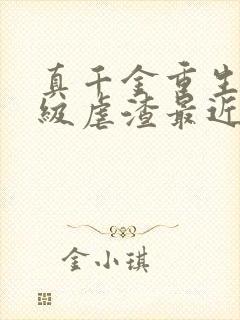 真千金重生
级虐渣最近
金小琪